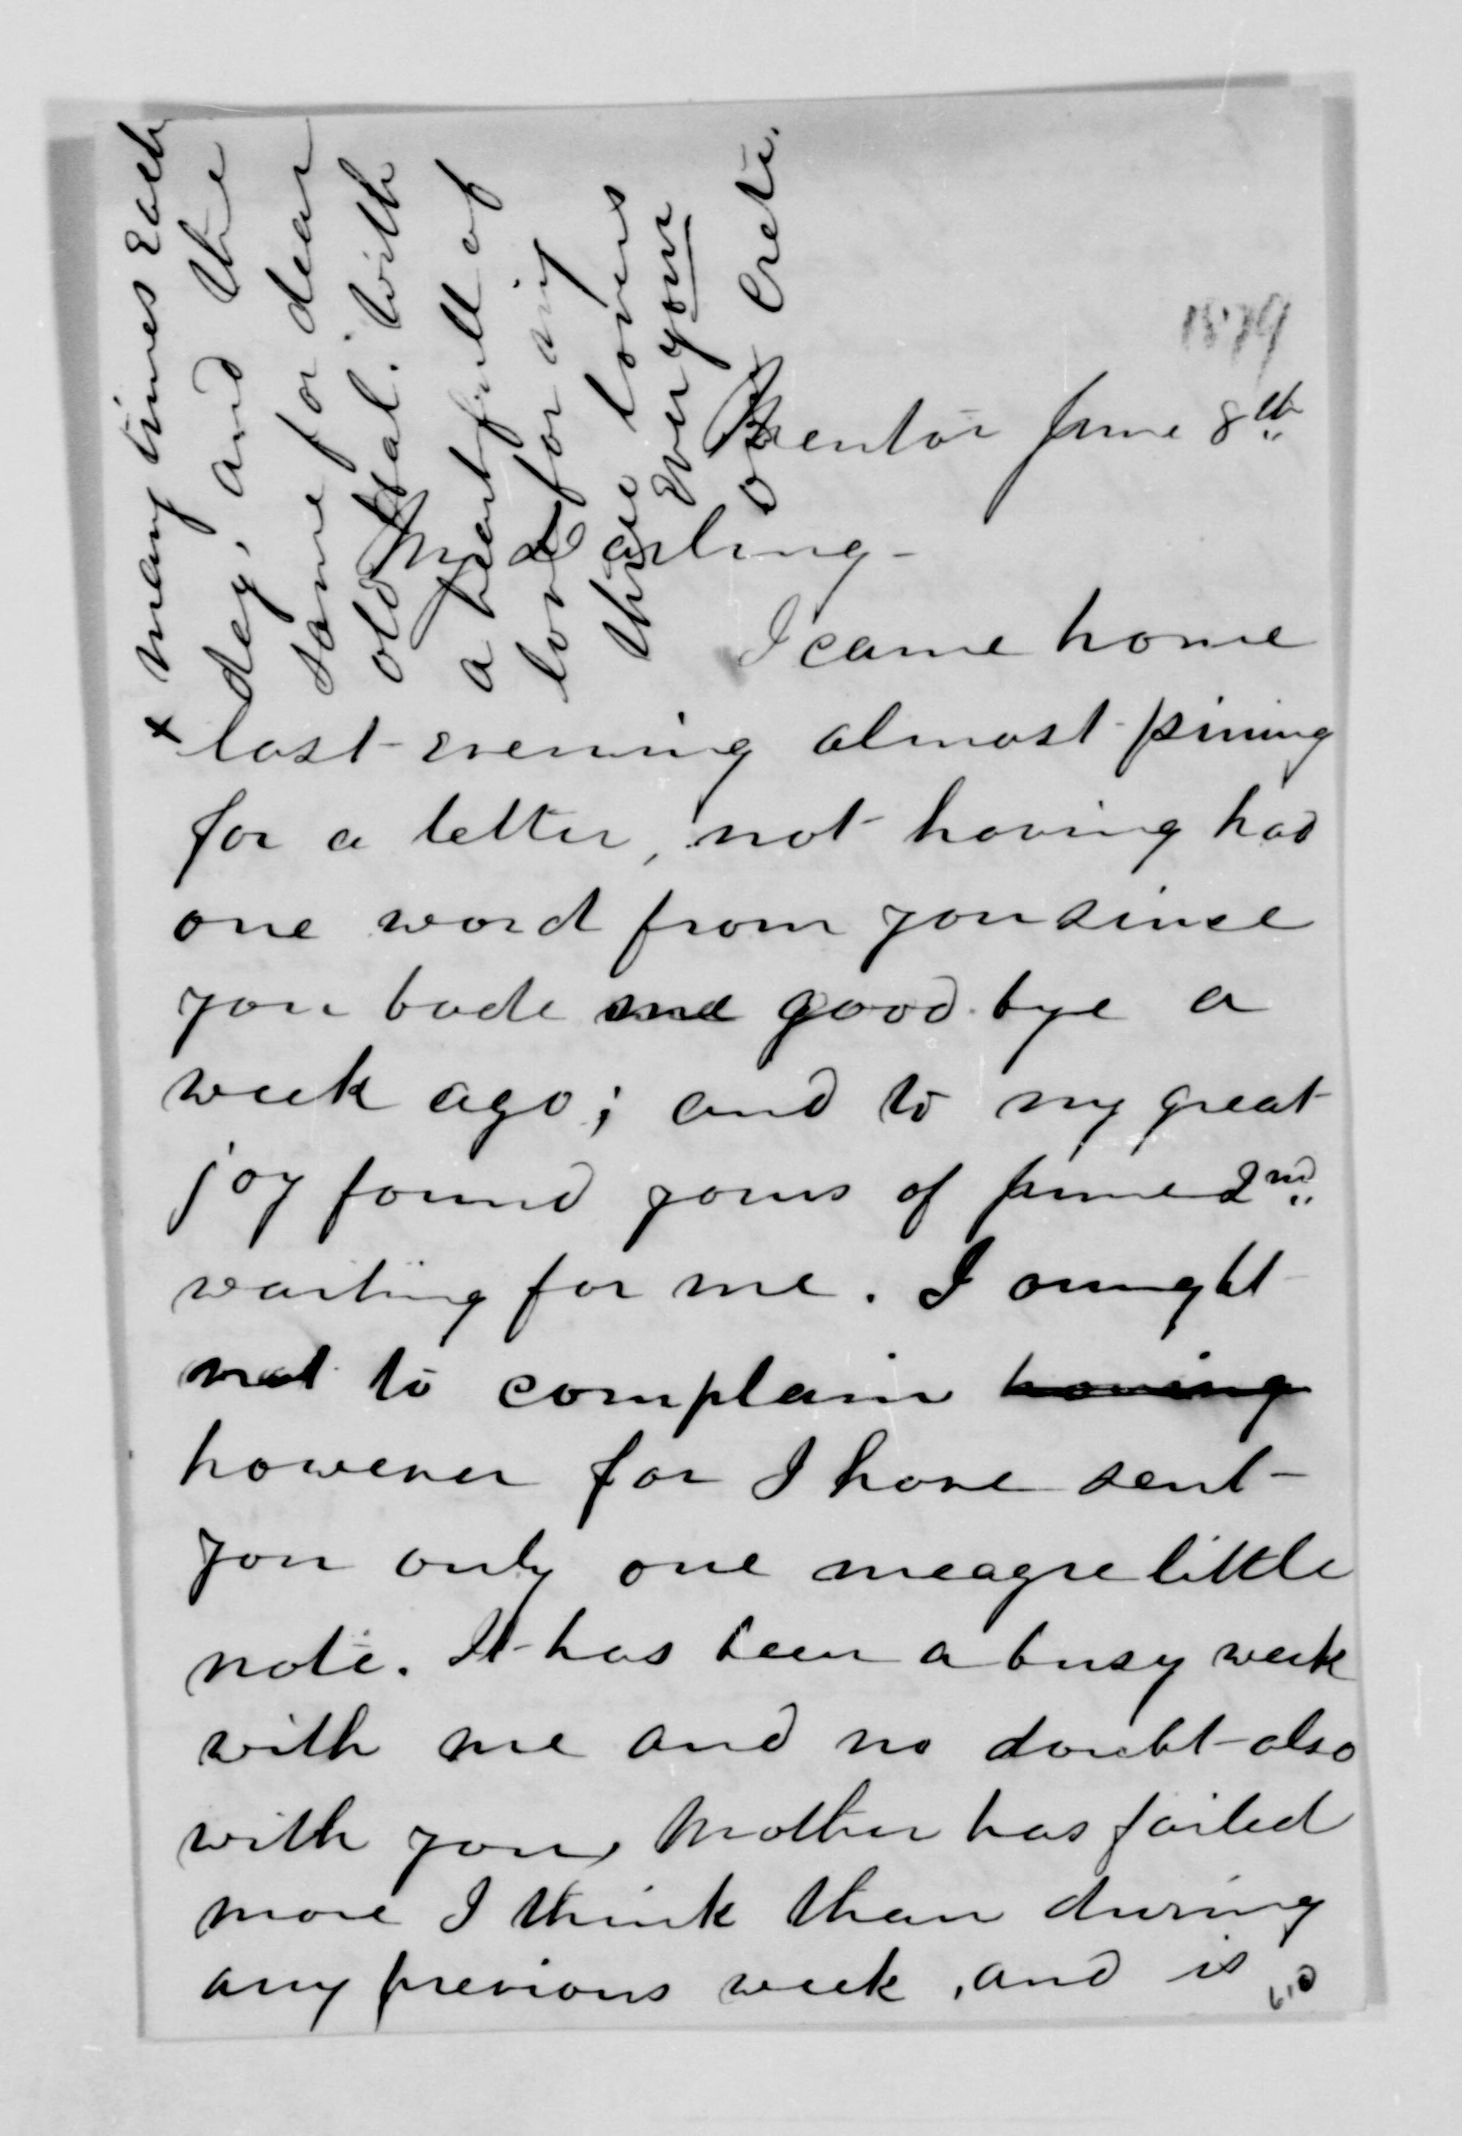 1879
Mentor June 8th
My Darling -
I came home
last evening almost pining
for a letter, not having had
one word from you since
you bade me good bye a
week ago; and to my great
joy found yours of June 2nd
waiting for me. I ought
not to complain having
however for I have sent
you only one meagre little
note. It has been a busy week
with me and no doubt also
with you. Mother has failed
more I think than during
any previous week, and is
+ many times Each
day, and the
same for dear
old Hal. With
a heart full of
love for my
three lovers
Ever your
own Crete.